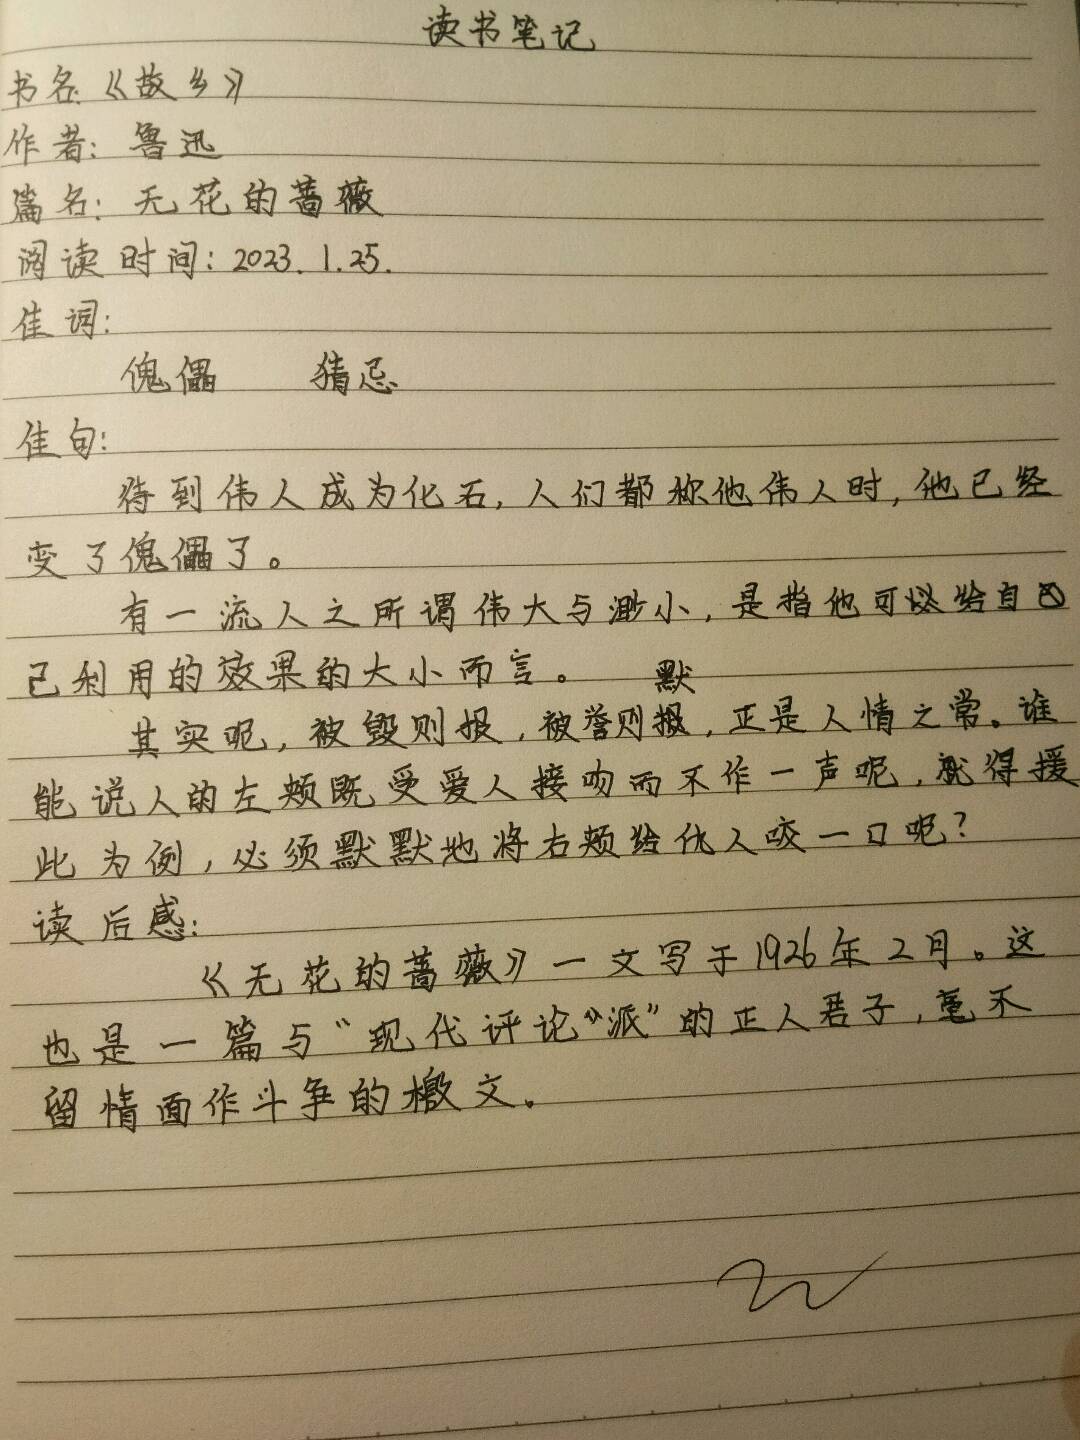 读书笔记
书名:《故乡》
作者：鲁迅
篇名：无花的蔷薇
阅读时间：2023.1.25.
佳词：
傀儡 猜忌
佳句：
待到伟人成为化石，人们都称他伟人时，他已经
变了傀儡了。
有一流人之所谓伟大与渺小，是指他可以给自
己利用的效果的大小而言。
默
其实呢，被毁则报，被誉则报，正是人情之常。谁
能说人的左颊既受爱人接吻而不作一声呢，就得援
此为例，必须默默地将右颊给仇人咬一口呢？
读后感：
《无花的蔷薇》一文写于1926年2月。这
也是一篇与“现代评论”派”的正人君子，毫不
留情面作斗争的檄文。